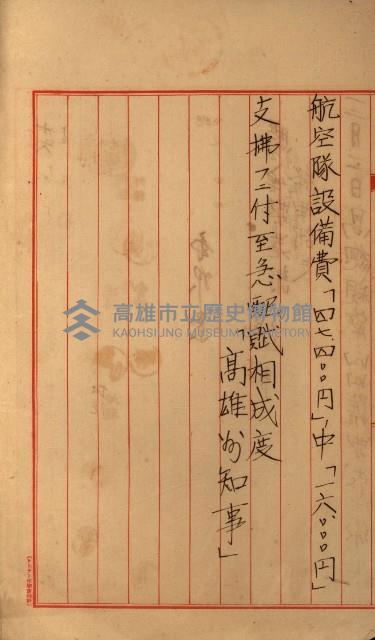 航空隊設備費「四七、四〇〇円」中「一六、〇〇〇円」
支拂ニ付至急配賦相成度
高雄州知事」
高雄市立歷史博物館
KAOHSIUNG MUSEUM OF HISTORY